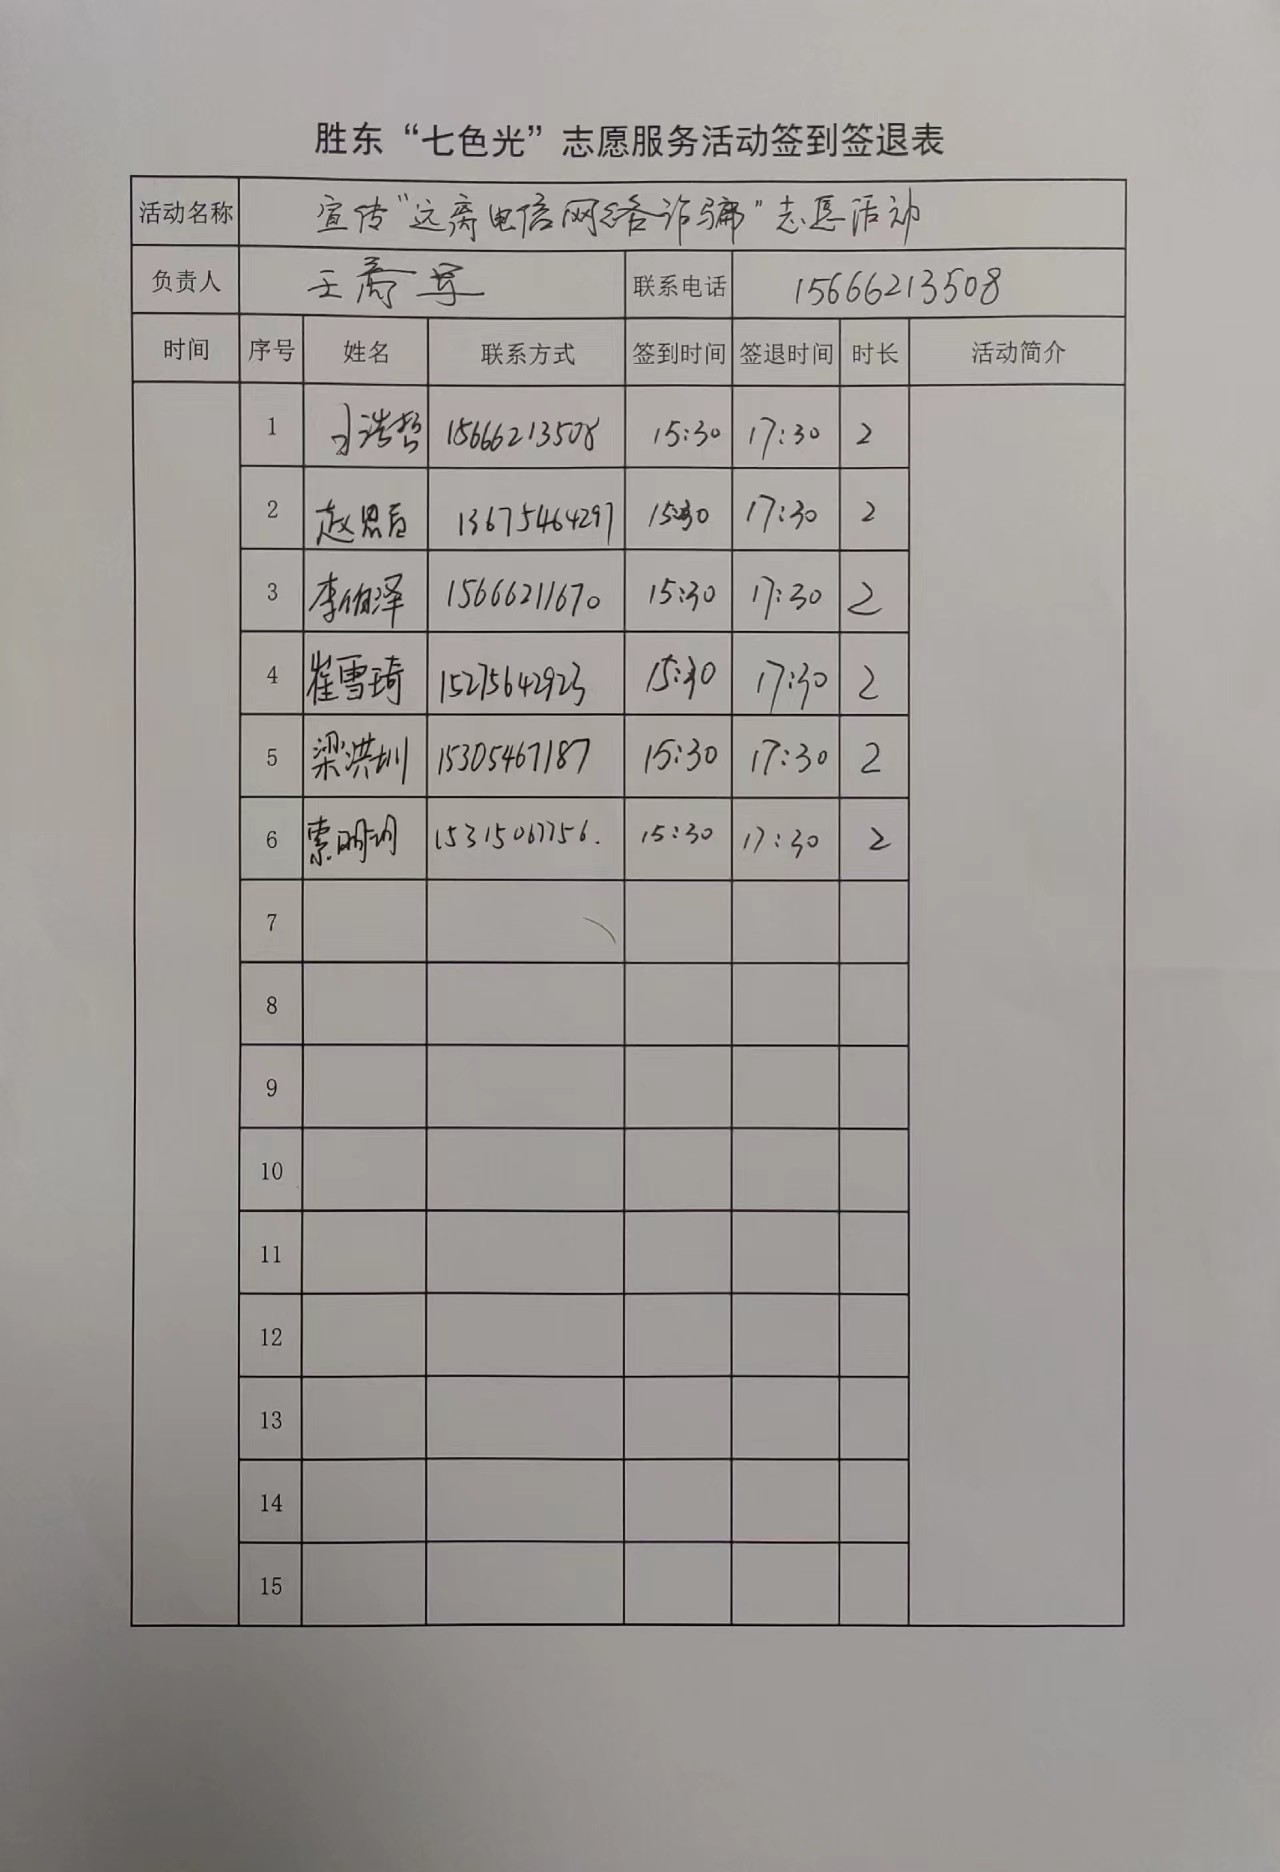 胜东“七色光”志愿服务活动签到签退表
活动名称 宣传“远离电信网络诈骗”志愿活动
负责人 王 联系电话 15666213508
时间 序号 姓名 联系方式 签到时间 签退时间 时长 活动简介
1 浩哲 15666213508 15:30 17:30 2
2 赵思 13675464297 15:30 17:30 2
3 李伯泽 15666211670 15:30 17:30 2
4 崔雪琦 15275642923 15:30 17:30 2
5 梁洪圳 15305467187 15:30 17:30 2
6 索明 15315067756. 15:30 17:30 2
7
8
9
10
11
12
13
14
15